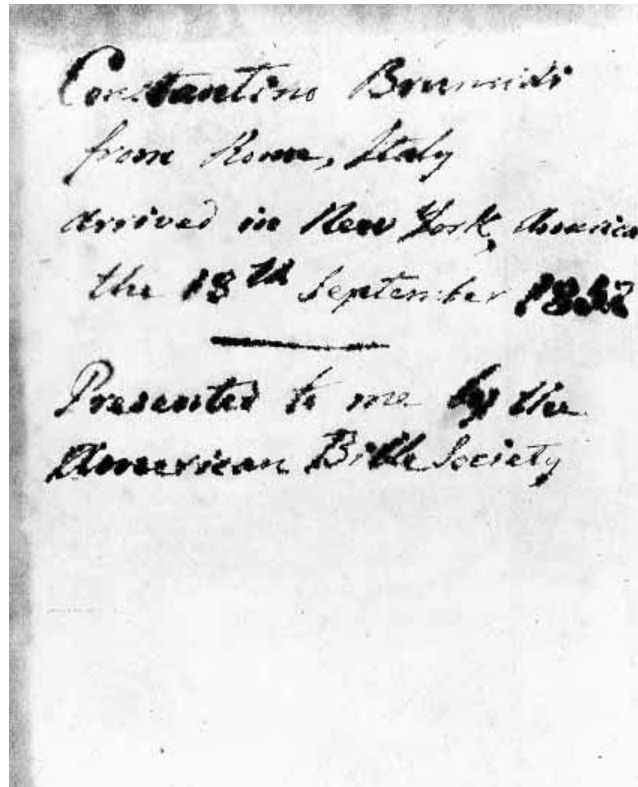 Constantino Brumidi
from Rome, Italy
arrived in New York, America
the 18th September 1852
Presented to me by the
American Bible Society